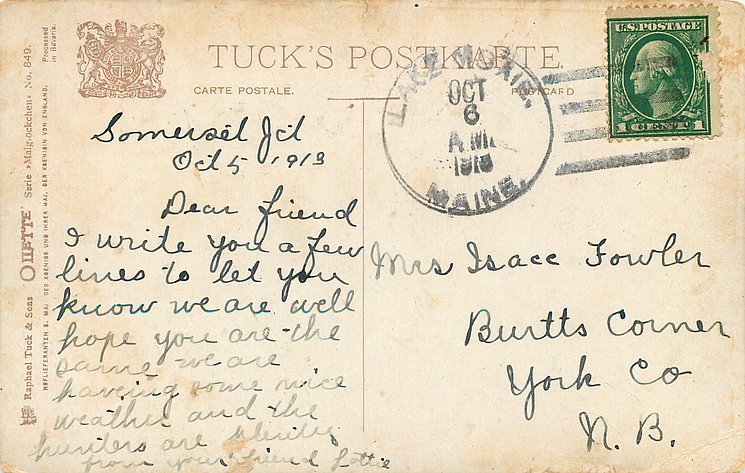 TUCK'S POSTKARTE.
CARTE POSTALE.
POSTCARD
LAKE
OCT
6
A.M.
1913
MAINE.
U.S. POSTAGE
1 CENT 1
Somerset Jct
Oct 5 1913
Dear friend
I write you a few
lines to let you
know we are well
hope you are the
same we are
haveing some nice
weather and the
hunters are plenty
from your friend Lottie
Mrs Isacc Fowler
Burtts Corner
York Co
N. B.
Raphael Tuck & Sons "OILETTE" Serie »Maiglöckchen« No. 849.
HOFLIEFERANTEN S. MAJ. DES KOENIGS UND IHRER MAJ. DER KOENIGIN VON ENGLAND.
Processed
in Bavaria.